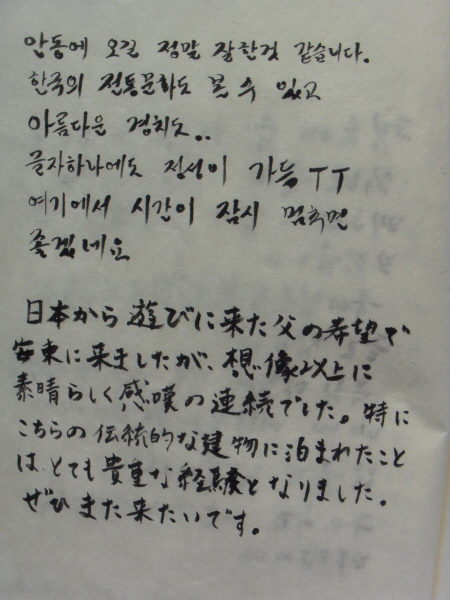 안동에 오길 정말 잘한것 같습니다.
한국의 전통문화도 볼 수 있고
아름다운 경치도..
글자하나에도 정성이 가득 TT
여기에서 시간이 잠시 멈추면
좋겠네요
日本から遊びに来た父の希望で
安東に来ましたが、想像以上に
素晴らしく感嘆の連続でした。特に
こちらの伝統的な建物に泊まれたこと
は、とても貴重な経験となりました。
ぜひまた来たいです。